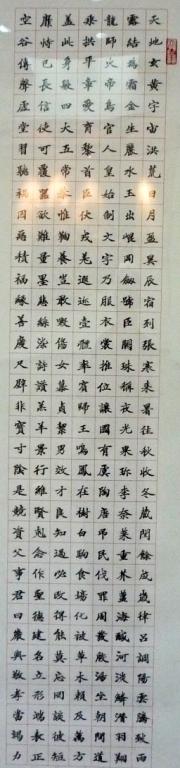 天地玄黃宇宙洪荒日月盈昃辰宿列張寒來暑往秋收冬藏閏餘成歲律呂調陽雲騰致雨
露結為霜金生麗水玉出崑岡劍號巨闕珠稱夜光果珍李柰菜重芥薑海鹹河淡鱗潛羽翔
龍師火帝鳥官人皇始制文字乃服衣裳推位讓國有虞陶唐弔民伐罪周發殷湯坐朝問道
垂拱平章愛育黎首臣伏戎羌遐邇壹體率賓歸王鳴鳳在樹白駒食場化被草木賴及萬方
蓋此身髮四大五常恭惟鞠養豈敢毀傷女慕貞絜男效才良知過必改得能莫忘罔談彼短
靡恃己長信使可覆器欲難量墨悲絲染詩讚羔羊景行維賢克念作聖德建名立形端表正
空谷傳聲虛堂習聽禍因惡積福緣善慶尺璧非寶寸陰是競資父事君曰嚴與敬孝當竭力